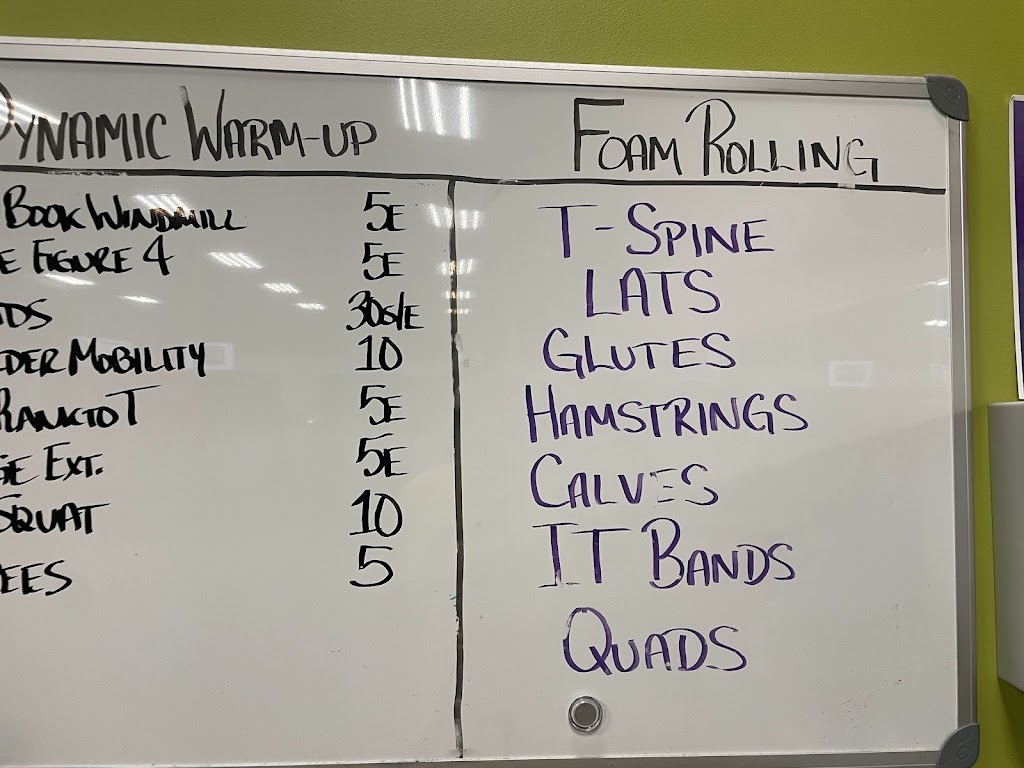 DYNAMIC WARM-UP
BOOK WINDMILL 5E
E FIGURE 4 5E
DS 30s/E
DER MOBILITY 10
PLANK TO T 5E
GE EXT. 5E
SQUAT 10
EES 5
FOAM ROLLING
T-SPINE
LATS
GLUTES
HAMSTRINGS
CALVES
IT BANDS
QUADS